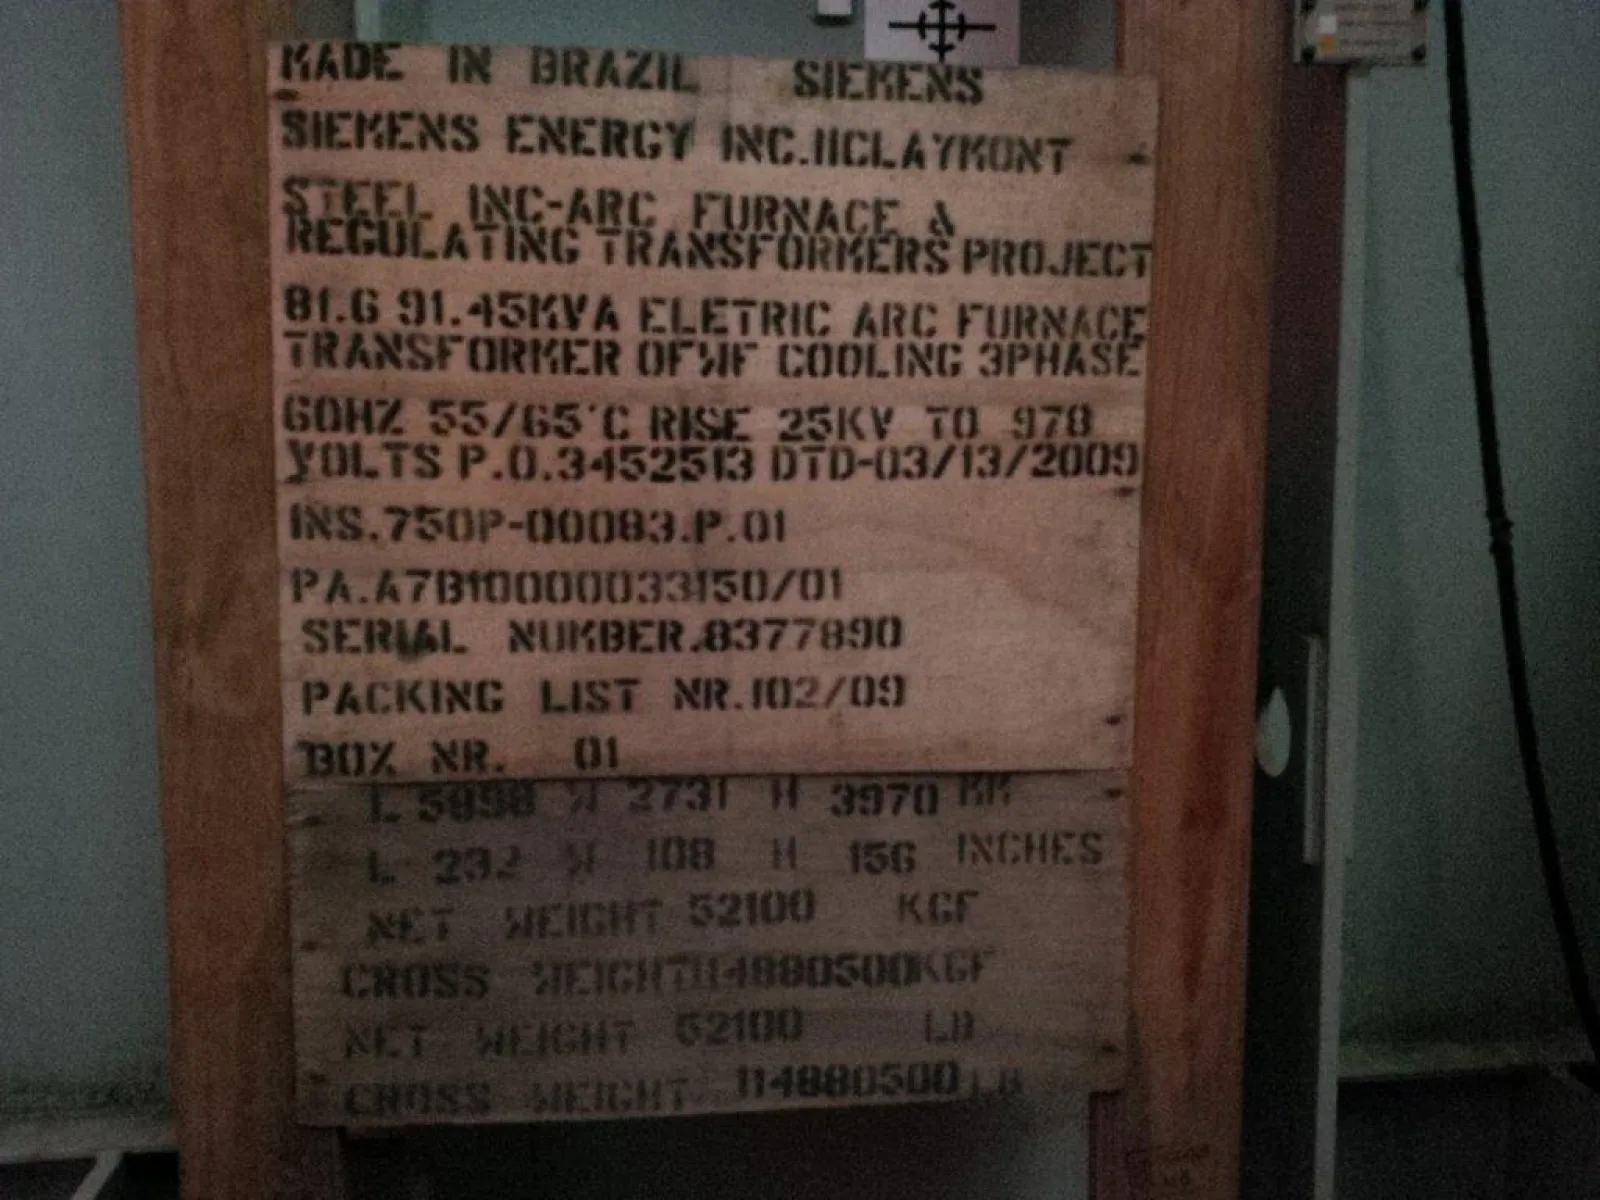 MADE IN BRAZIL SIEMENS
SIEMENS ENERGY INC.IICLAYMONT
STEEL INC-ARC FURNACE &
REGULATING TRANSFORMERS PROJECT
81.6 91.45KVA ELETRIC ARC FURNACE
TRANSFORMER OFWF COOLING 3PHASE
60HZ 55/65°C RISE 25KV TO 978
VOLTS P.O.3452513 DTD-03/13/2009
INS.750P-00083.P.01
PA.A7B10000033150/01
SERIAL NUMBER.8377890
PACKING LIST NR.102/09
BOX NR. 01
L 5898 W 2731 H 3970 MM
L 232 W 108 H 156 INCHES
NET WEIGHT 52100 KGF
GROSS WEIGHT KGF
NET WEIGHT 52100 LB
GROSS WEIGHT 114880500 LB